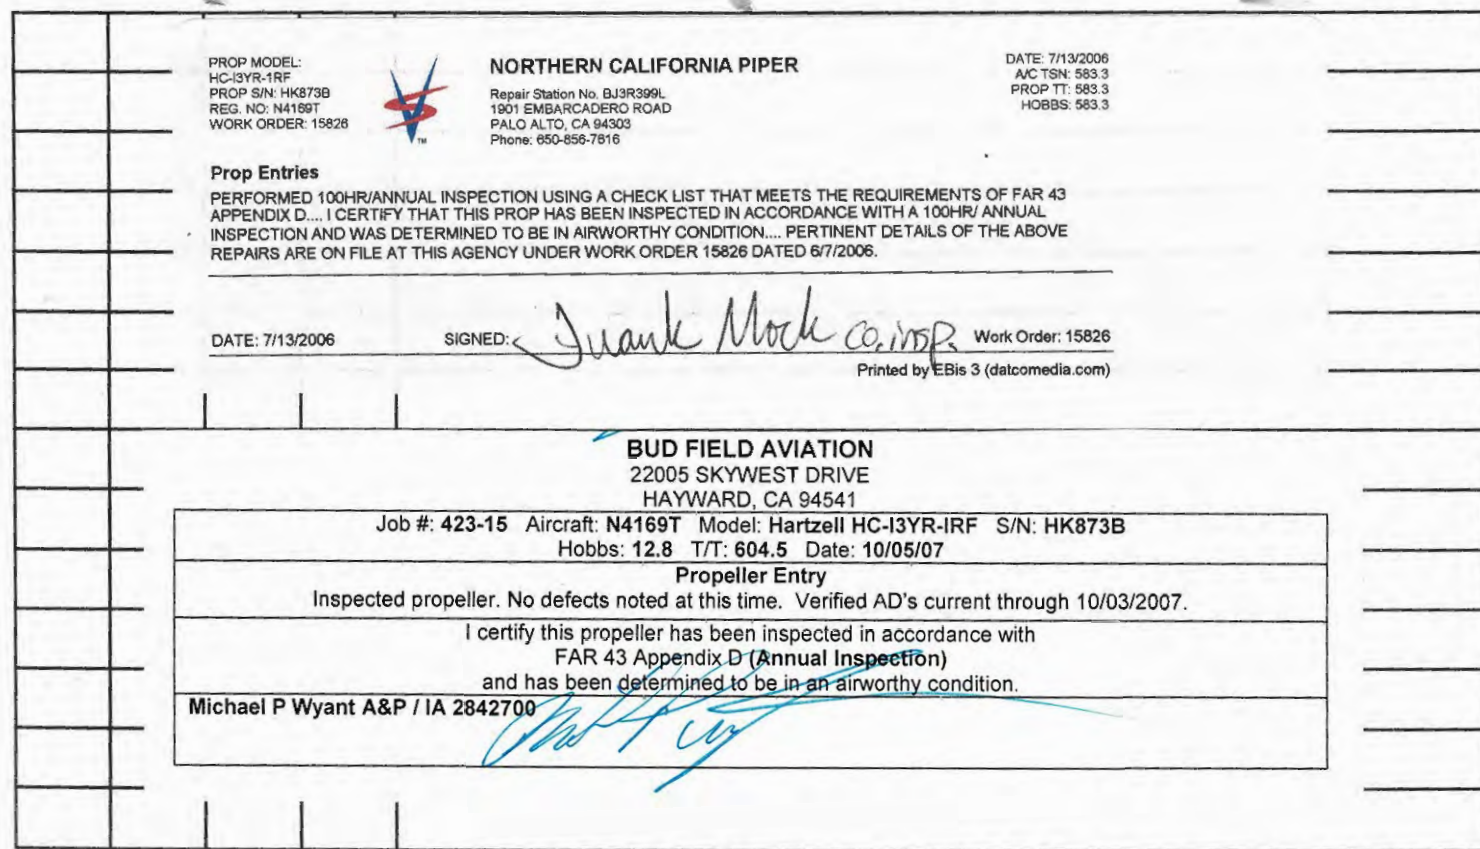 PROP MODEL:
HC-I3YR-1RF
PROP S/N: HK873B
REG. NO: N4169T
WORK ORDER: 15826
TM
NORTHERN CALIFORNIA PIPER
Repair Station No. BJ3R399L
1901 EMBARCADERO ROAD
PALO ALTO, CA 94303
Phone: 650-856-7616
DATE: 7/13/2006
A/C TSN: 583.3
PROP TT: 583.3
HOBBS: 583.3
Prop Entries
PERFORMED 100HR/ANNUAL INSPECTION USING A CHECK LIST THAT MEETS THE REQUIREMENTS OF FAR 43
APPENDIX D.... I CERTIFY THAT THIS PROP HAS BEEN INSPECTED IN ACCORDANCE WITH A 100HR/ ANNUAL
INSPECTION AND WAS DETERMINED TO BE IN AIRWORTHY CONDITION.... PERTINENT DETAILS OF THE ABOVE
REPAIRS ARE ON FILE AT THIS AGENCY UNDER WORK ORDER 15826 DATED 6/7/2006.
DATE: 7/13/2006 SIGNED: Mock co. insp. Work Order: 15826
Printed by EBis 3 (datcomedia.com)
BUD FIELD AVIATION
22005 SKYWEST DRIVE
HAYWARD, CA 94541
Job #: 423-15 Aircraft: N4169T Model: Hartzell HC-I3YR-IRF S/N: HK873B
Hobbs: 12.8 T/T: 604.5 Date: 10/05/07
Propeller Entry
Inspected propeller. No defects noted at this time. Verified AD's current through 10/03/2007.
I certify this propeller has been inspected in accordance with
FAR 43 Appendix D (Annual Inspection)
and has been determined to be in an airworthy condition.
Michael P Wyant A&P / IA 2842700